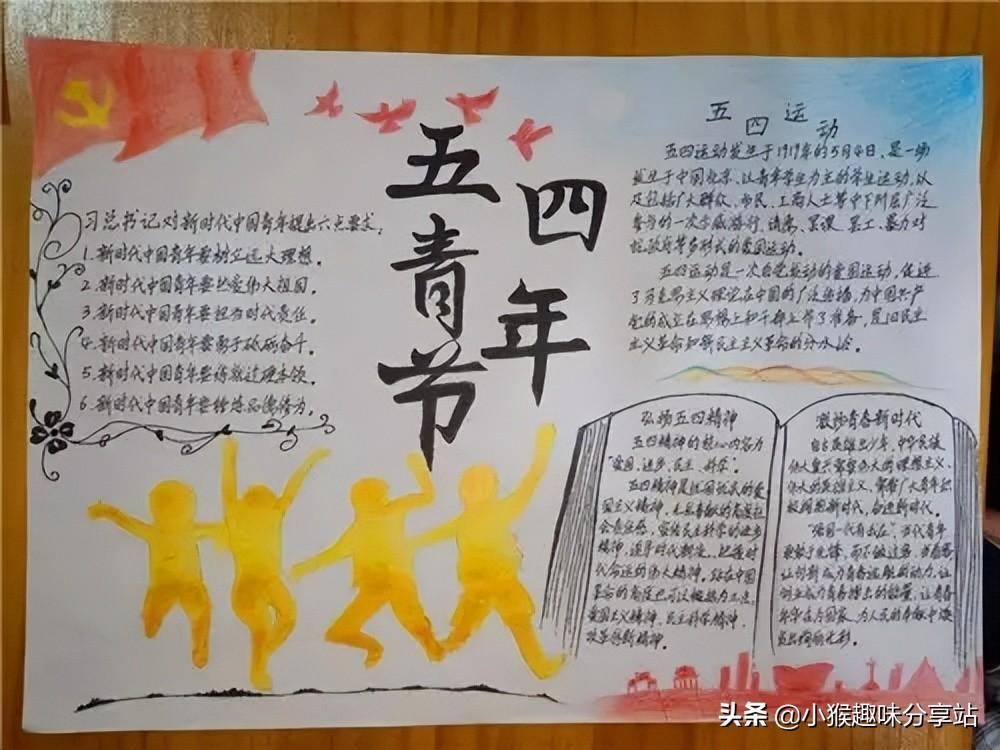 五四青年节
习总书记对新时代中国青年提出六点要求:
1.新时代中国青年要树立远大理想。
2.新时代中国青年要热爱伟大祖国。
3.新时代中国青年要担当时代责任。
4.新时代中国青年要勇于砥砺奋斗。
5.新时代中国青年要练就过硬本领。
6.新时代中国青年要锤炼品德修为。
五四运动
五四运动发生于1919年的5月4日、是一场
发生于中国北京、以青年学生为主的学生运动,以
及包括广大群众、市民、工商人士等中下阶层广泛
参与的一次示威游行、请愿、罢课、罢工、暴力对
抗政府等多形式的爱国运动。
五四运动是一次自觉发动的爱国运动,促进
了马克思主义理论在中国的广泛传播,为中国共产
党的成立在思想上和干部上作了准备,是旧民主
主义革命和新民主主义革命的分水岭。
弘扬五四精神
五四精神的核心内容为
“爱国、进步、民主、科学”。
五四精神是
国主义精神,
会责任感,
精神,
代命运的伟大精神。
爱国主义精神,民主科学精神,
改革创新精神。
激扬青春新时代
自古英雄出少年,中华民族
伟大复兴需要
伟大的英雄主义,需要广大青年
拥抱新时代,奋进新时代。
当代青年
让创新成为青春远航的动力,让
创业成为青春搏击的能量,让青春
年华在为国家、为人民的奉献中焕
发出绚丽光彩。
头条 @小猴趣味分享站